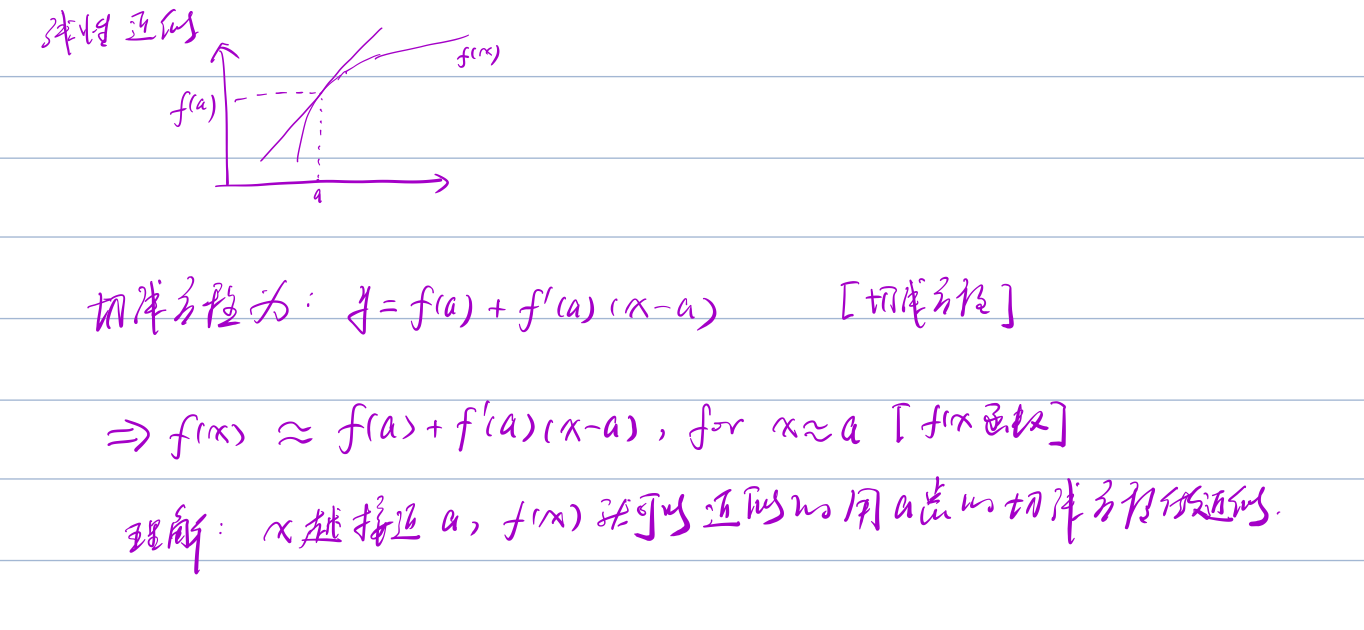 线性近似
f(x)
f(a)
a
切线方程为: y = f(a) + f'(a) (x-a) [切线方程]
⇒ f(x) ≈ f(a) + f'(a) (x-a), for x≈a [f(x函数]
理解: x越接近a, f(x)就可以近似的用a点的切线方程做近似.